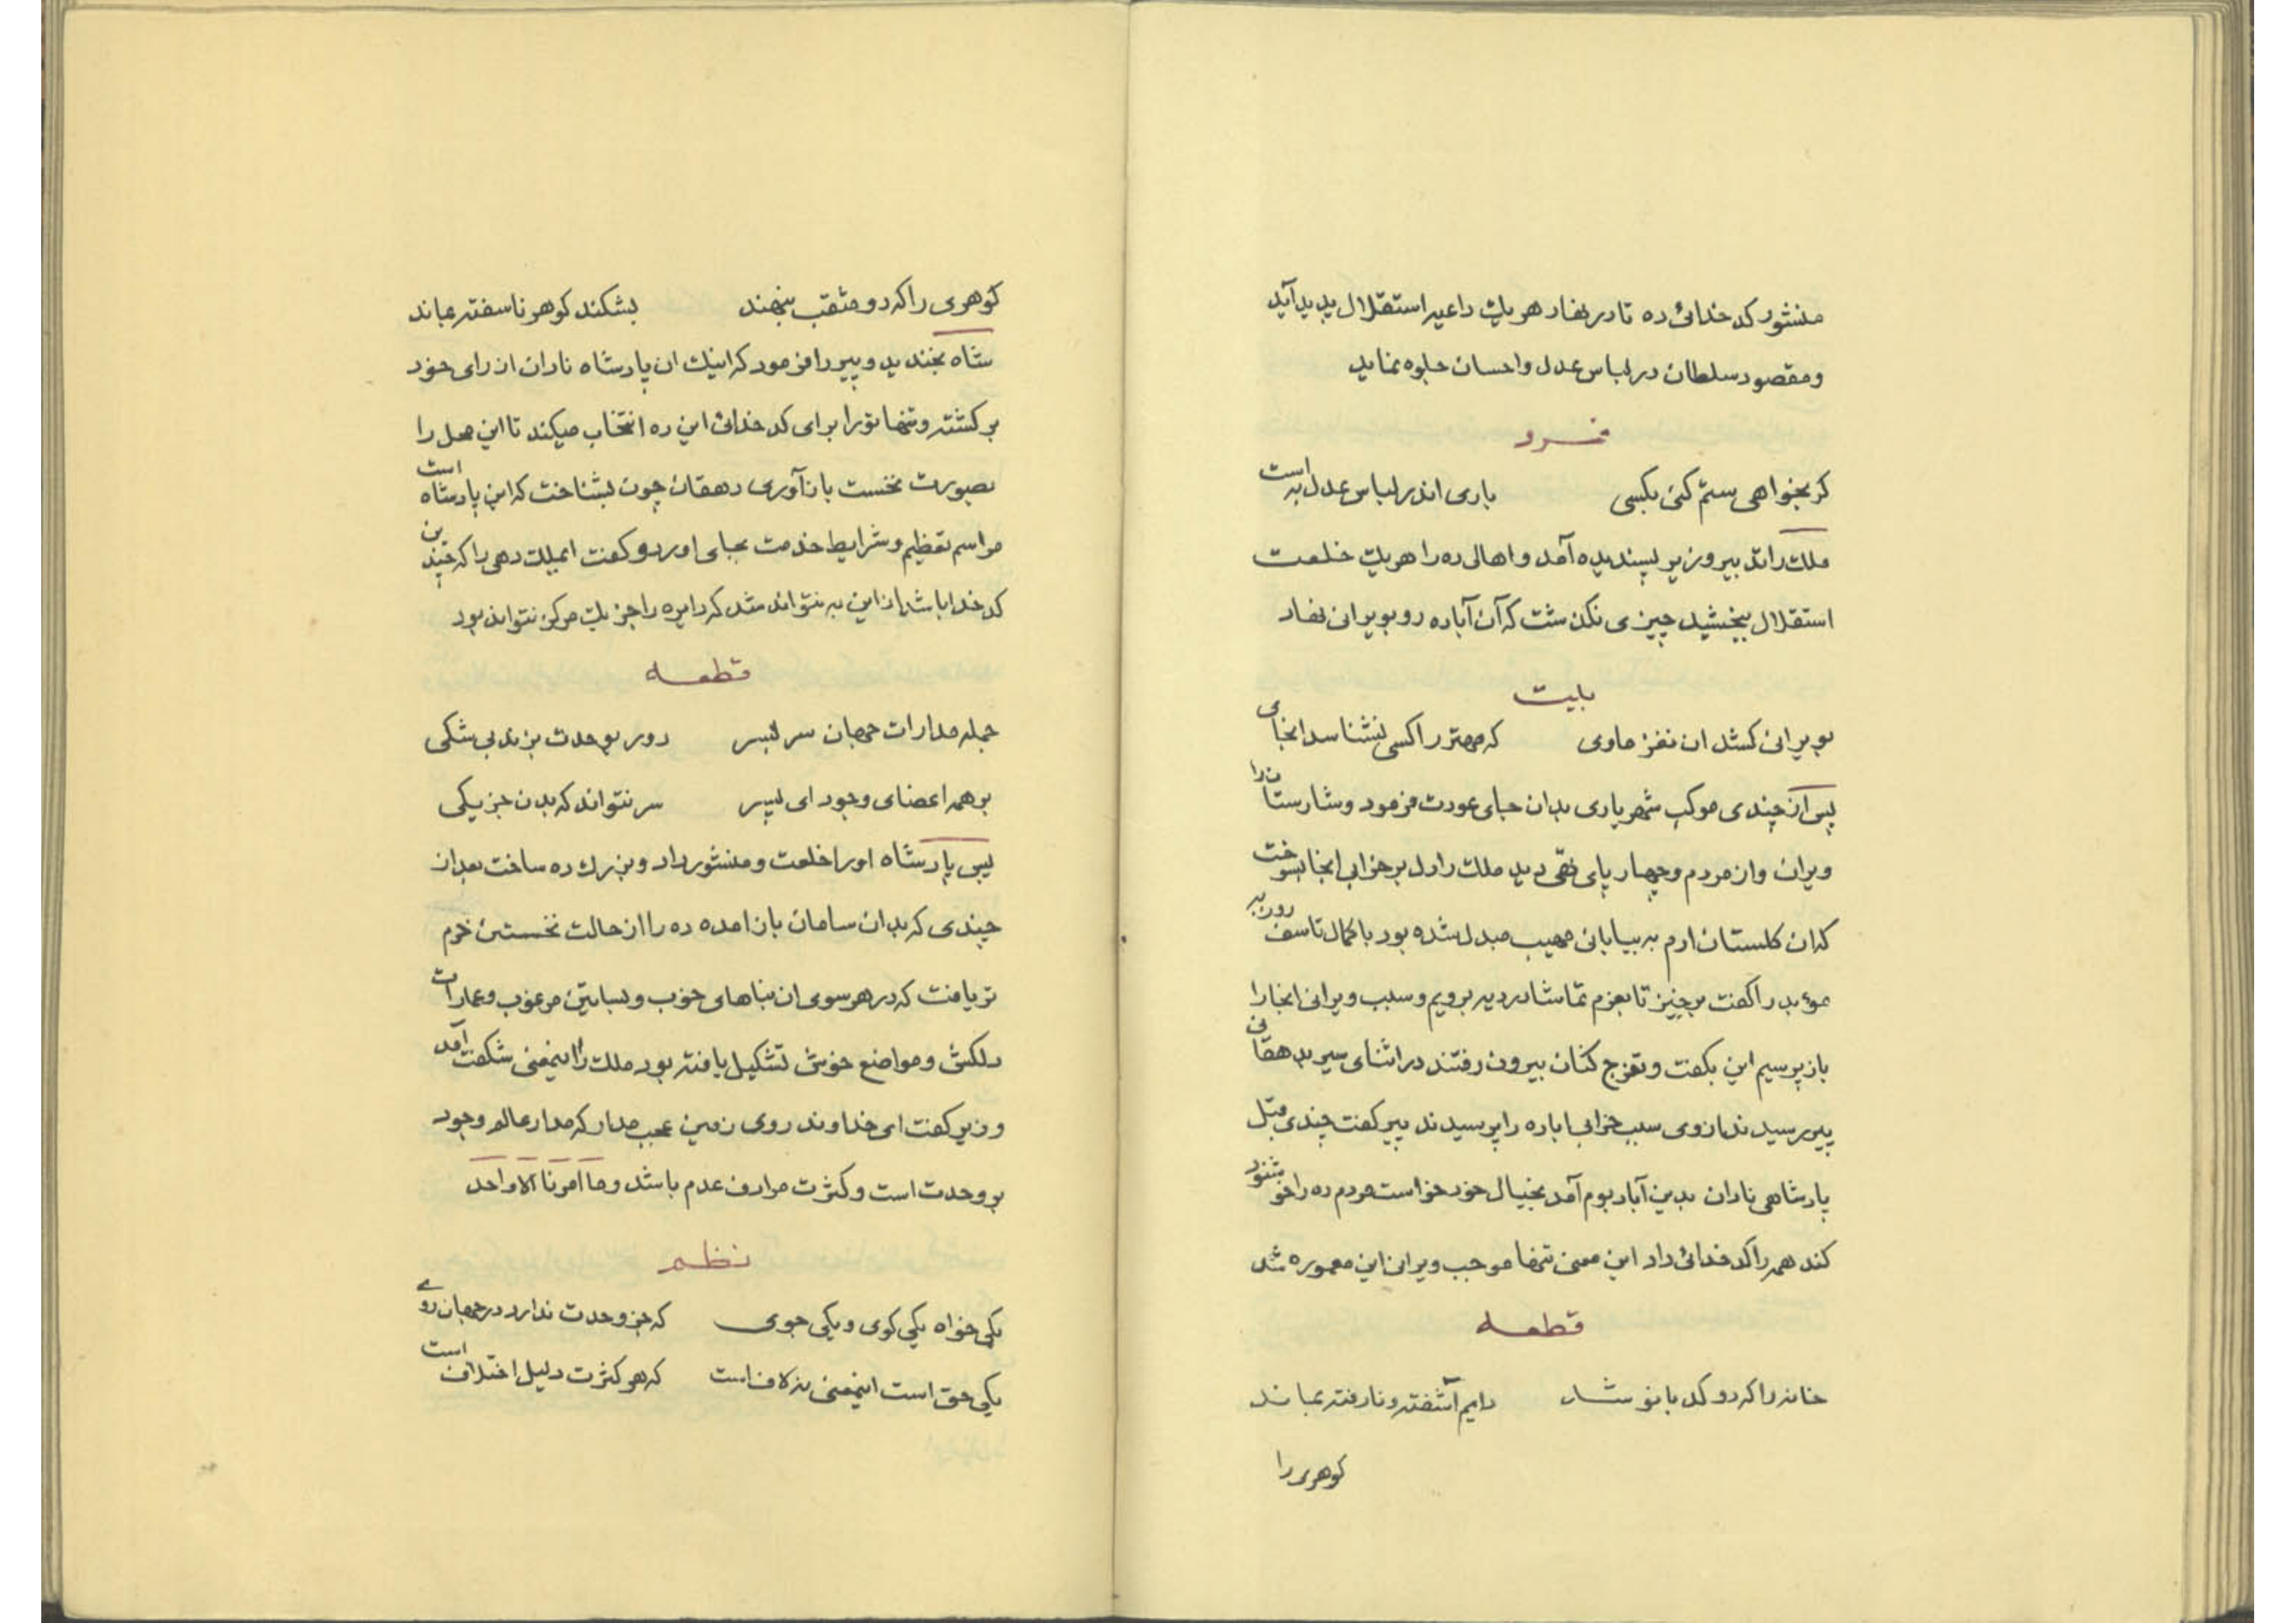 منشور کدخدائی ده تا در نهاد هریك داعیه استقلال پدید آید
و مقصود سلطان در لباس عدل و احسان جلوه نماید
فرد
کر بخواهی ستم کنی بکسی باری اندر لباس عدل به است
ملك را تدبیر وزیر پسندیده آمد و اهالی ده را هریك خلعت
استقلال ببخشید چیزی نکذشت که آن آباده رو بویرانی نهاد
بیت
بویرانی کشد ان نغز ماوی که مهتر را کسی نشناسد انجای
پس از چندی موکب شهریاری بدان جای عودت فرمود و شارستان را
ویران و از مردم و چهار پای تهی دید ملك را دل بر خرابی انجا بسوخت
که ان کلستان ارم به بیابانی مهیب مبدل شده بود با کمال تاسف روزبه
موءبد را کفت برخیز تا بعزم تماشا بردیه برویم و سبب ویرانی انجا را
باز پرسیم این بکفت و تفرج کنان بیرون رفتند در اثنای سیر بدهقانی
پیر رسیدند از وی سبب خرابی اباده را پرسیدند پیر کفت چندی قبل
پادشاهی نادان بدین آباد بوم آمد بخیال خود خواست مردم ده را خوشنود
کند همه را کدخدائی داد این معنی تنها موجب ویرانی این معموره شد
قطعه
خانه را که دو کدبانو شد دایم آشفته و نارفته بماند
کوهری را
کوهری را که دو مثقب بنهند بشکند کوهر ناسفته بماند
شاه بخندید و پیر را فرمود که اینك ان پادشاه نادان از رای خود
برکشته و تنها تو را برای کدخدائی این ده انتخاب میکند تا این محل را
بصورت نخست باز آوری دهقان چون بشناخت که این پادشاه است
مراسم تعظیم و شرایط خدمت بجای اورد و کفت ایملك دهی را که چندین
کدخدا باشد از این به نتواند شد که دایره را جز یك مرکز نتواند بود
قطعه
جمله مدارات جهان سر بسر دور بوحدت بزند بی شکی
بر همه اعضای وجود ای پسر سر نتواند که بدن جز یکی
پس پادشاه او را خلعت و منشور داد و بزرك ده ساخت بعد از
چندی که بدان سامان باز امده ده را از حالت نخستین خرم
تر یافت که در هر سوی ان بناهای خوب و بساتین مرغوب و عمارات
دلکش و مواضع خوش تشکیل یافته بود ملك را اینمعنی شکفت آمد
وزیر کفت ای خداوند روی زمین عجب مدار که مدار عالم وجود
بر وحدت است و کثرت مرادف عدم باشد و ما امرنا الا واحد
نظم
یکی خواه یکی کوی و یکی جوی که جز وحدت ندارد در جهان روے
یکی حق است اینمعنی نه لاف است که هر کثرت دلیل اختلاف است